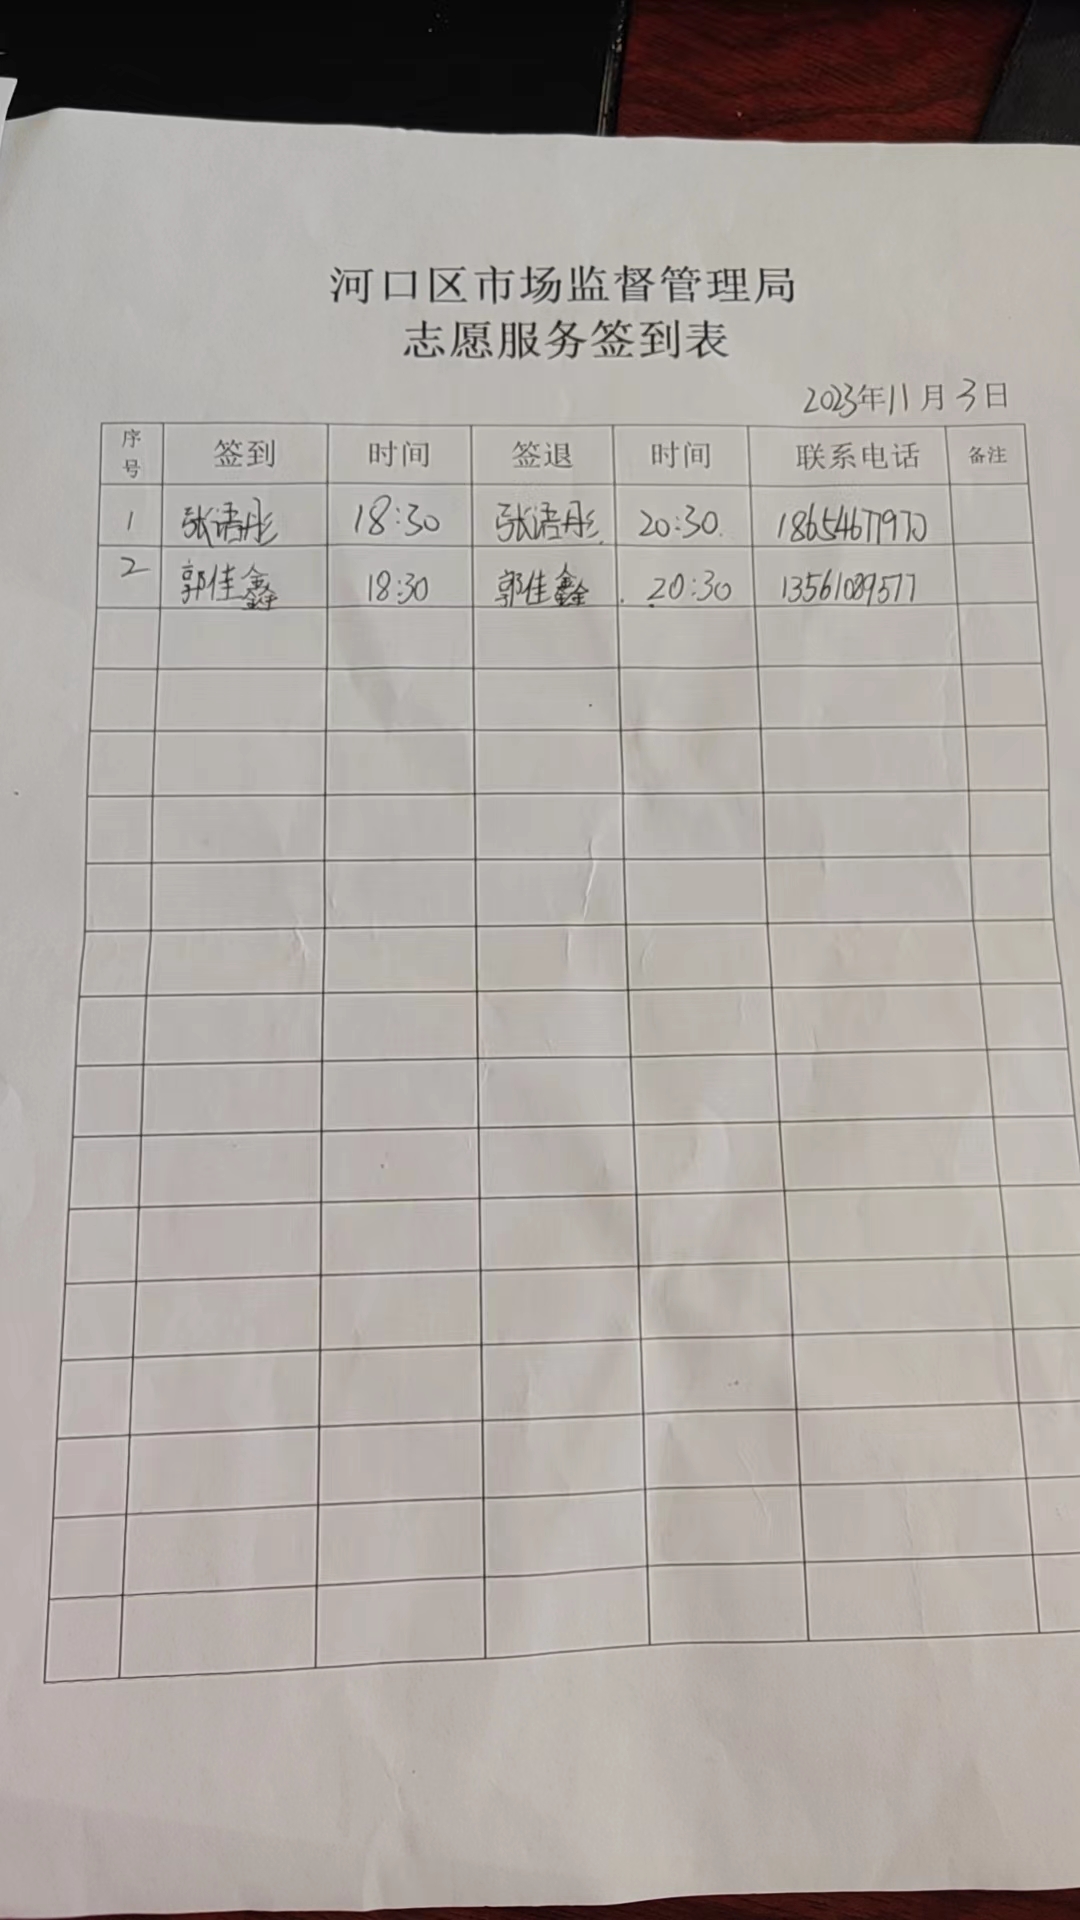 河口区市场监督管理局
志愿服务签到表
2023年11月3日
序号 签到 时间 签退 时间 联系电话 备注
1 张语彤 18:30 张语彤 20:30 18654677970
2 郭佳鑫 18:30 郭佳鑫 20:30 13561089577